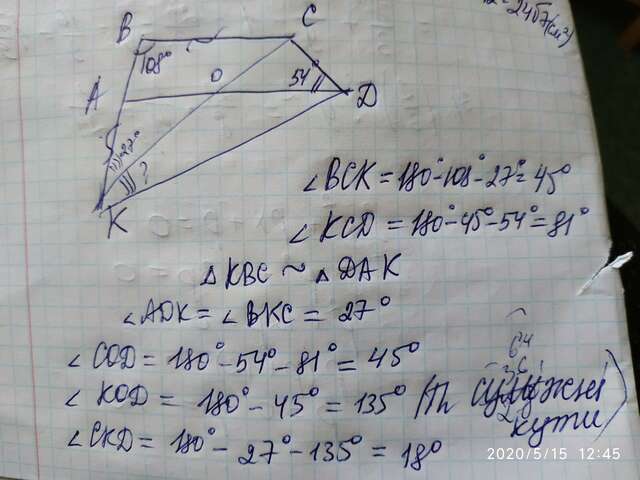 = 2457(см²)
B
C
108°
A
O
54°
D
27°
?
K
∠BCK = 180° - 108° - 27° = 45°
∠KCD = 180° - 45° - 54° = 81°
△KBC ~ △DAK
∠ADK = ∠BKC = 27°
∠COD = 180° - 54° - 81° = 45°
∠KOD = 180° - 45° = 135° (Th суміжні
кути)
∠CKD = 180° - 27° - 135° = 18°
2020/5/15 12:45